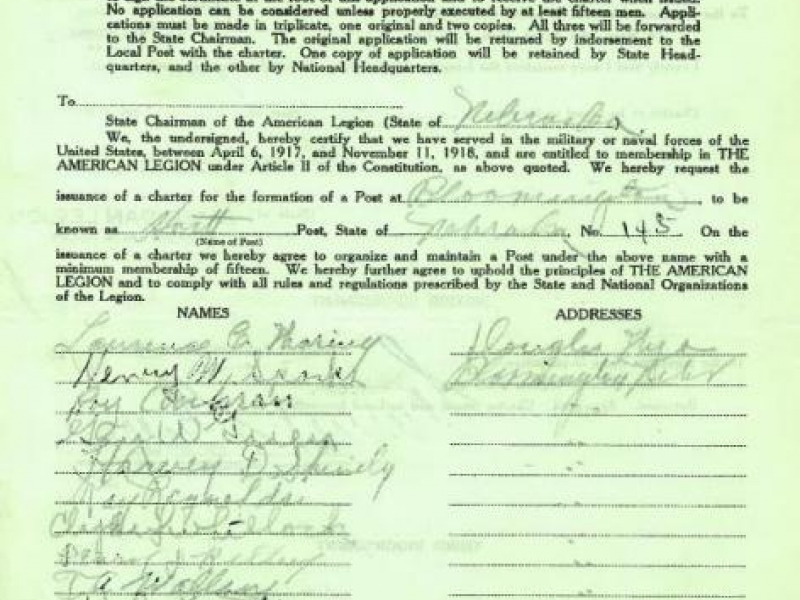 No application can be considered unless properly executed by at least fifteen men. Appli-
cations must be made in triplicate, one original and two copies. All three will be forwarded
to the State Chairman. The original application will be returned by indorsement to the
Local Post with the charter. One copy of application will be retained by State Head-
quarters, and the other by National Headquarters.
To
State Chairman of the American Legion (State of Nebraska)
We, the undersigned, hereby certify that we have served in the military or naval forces of the
United States, between April 6, 1917, and November 11, 1918, and are entitled to membership in THE
AMERICAN LEGION under Article II of the Constitution, as above quoted. We hereby request the
issuance of a charter for the formation of a Post at Bloomington, to be
known as Post, State of Nebraska, No. 145 On the
(Name of Post)
issuance of a charter we hereby agree to organize and maintain a Post under the above name with a
minimum membership of fifteen. We hereby further agree to uphold the principles of THE AMERICAN
LEGION and to comply with all rules and regulations prescribed by the State and National Organizations
of the Legion.
NAMES ADDRESSES
Henry M. Bloomington Nebr
Roy
Harvey D. Shively
Roy Reynolds
Clyde